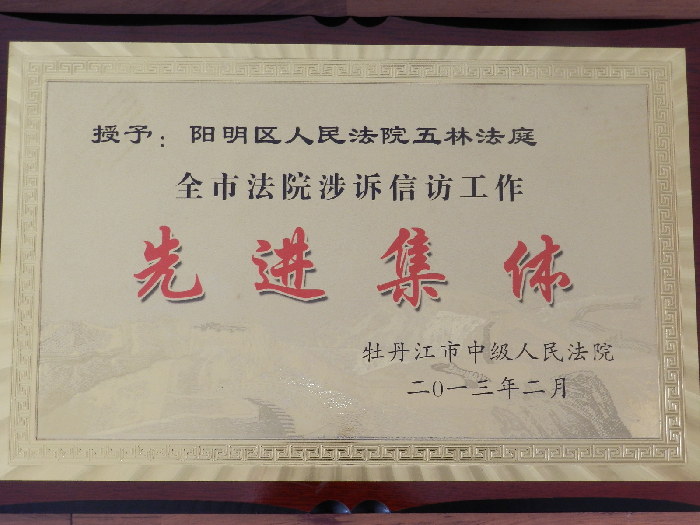 授予：阳明区人民法院五林法庭
全市法院涉诉信访工作
先进集体
牡丹江市中级人民法院
二〇一三年二月